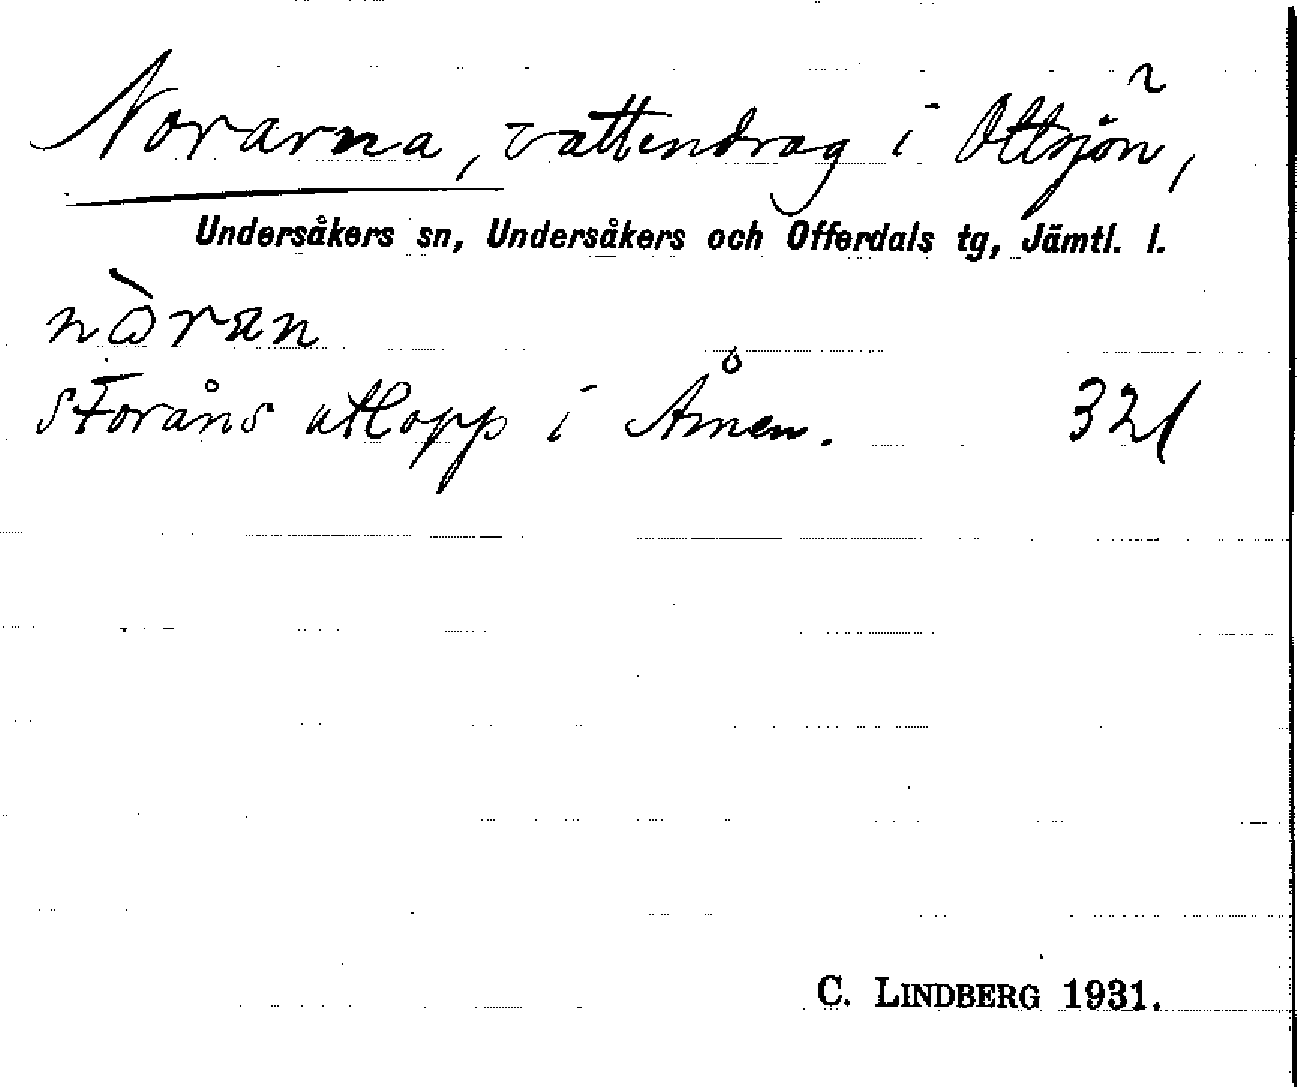 Norarna, vattendrag i Ottsjön,
Undersåkers sn, Undersåkers och Offerdals tg, Jämtl. l.
nò̀ran
Foråns utlopp i Ånen. 321
C. LINDBERG 1931.